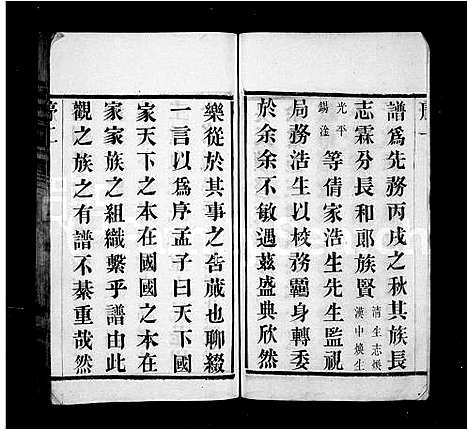 序一
譜爲先務丙戌之秋其族長
志霖分長和郞族賢清生志煥漢中煥生
光平錫淦等倩家浩生先生監視
局務浩生以校務覊身轉委
於余余不敏遇茲盛典欣然
樂從於其事之告蕆也聊綴
一言以爲序孟子曰天下國
家天下之本在國國之本在
家家族之組織繫乎譜由此
觀之族之有譜不綦重哉然
序二